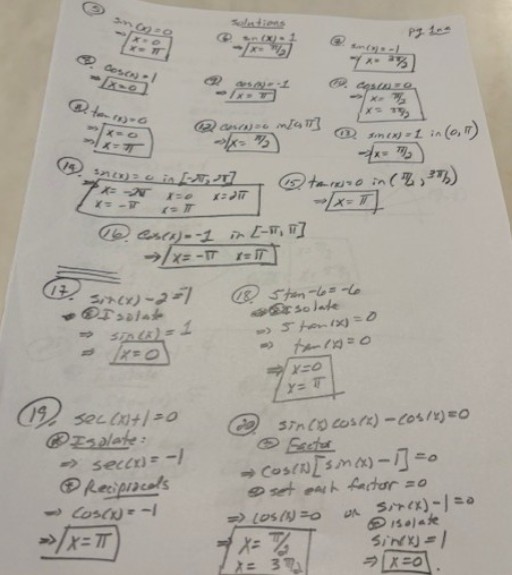 Solutions
pg 1 of
⑤ sin(x)=0
⇒ x=0
⇒ x=π
⑥ sin(x)=1
⇒ x=π/2
sin(x)=-1
⇒ x=3π/2
cos(x)=1
⇒ x=0
cos(x)=-1
⇒ x=π
cos(x)=0
⇒ x=π/2
x=3π/2
tan(x)=0
⇒ x=0
⇒ x=π
⑫ cos(x)=0 in [0,π]
⇒ x=π/2
⑬ sin(x)=1 in (0,π)
⇒ x=π/2
⑭ sin(x)=0 in [-2π,2π]
x=-2π x=0 x=2π
x=-π x=π
⑮ tan(x)=0 in (π/2, 3π/2)
⇒ x=π
⑯ cos(x)=-1 in [-π,π]
⇒ x=-π x=π
⑰ sin(x)-2=-1
Isolate
⇒ sin(x)=1
⇒ x=0
⑱ 5tan-6=-6
Isolate
⇒ 5tan(x)=0
⇒ tan(x)=0
⇒ x=0
x=π
⑲ sec(x)+1=0
Isolate:
⇒ sec(x)=-1
Reciprocals
⇒ cos(x)=-1
⇒ x=π
⑳ sin(x)cos(x)-cos(x)=0
Factor
⇒ cos(x)[sin(x)-1]=0
set each factor=0
⇒ cos(x)=0 or sin(x)-1=0
Isolate
sin(x)=1
⇒ x=π/2
x=3π/2
⇒ x=0.